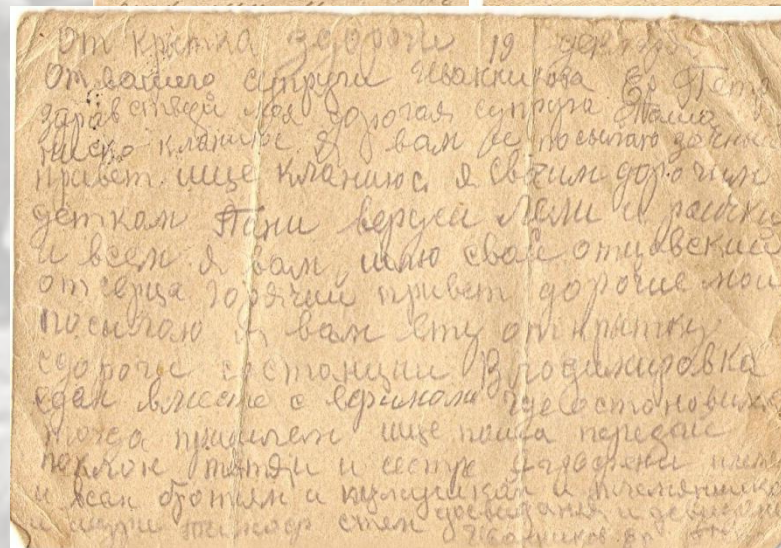 От крытка здороги 19 декабря
От вашего супруга Иванникова Ер Петр
здравствуй моя дорогая супруга Паша
ниско кланиюс я вам и посылаю
привет ище кланиюс я своим дорогим
деткам Тани веруси Лели и раички
и всем я вам шлю свой отцавский
от серца горячий привет дорогие мои
посылаю я вам ету открытку
сдороги состанции Владимировка
едем вместе с
тогда пришлем ище паша передай
поклон тяти и сестре
и всем братям и кумушкам и племянника
и стем досвидания